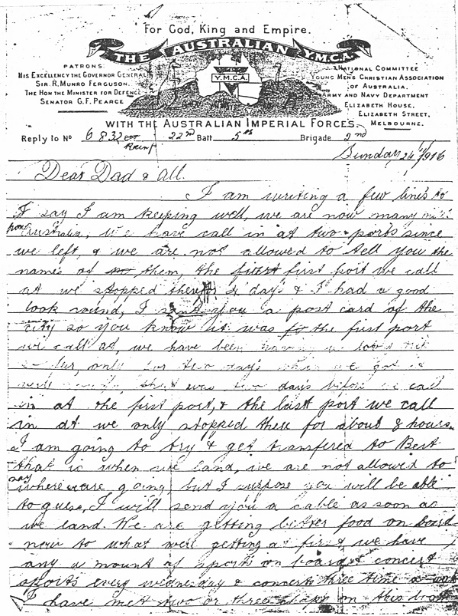 For God, King and Empire.
THE AUSTRALIAN Y.M.C.A.
Y.M.C.A.
PATRONS
HIS EXCELLENCY THE GOVERNOR GENERAL
SIR. R. MUNRO FERGUSON.
THE HON THE MINISTER FOR DEFENCE
SENATOR G.F. PEARCE
NATIONAL COMMITTEE
YOUNG MEN'S CHRISTIAN ASSOCIATION
OF AUSTRALIA.
ARMY AND NAVY DEPARTMENT
ELIZABETH HOUSE,
ELIZABETH STREET,
MELBOURNE.
WITH THE AUSTRALIAN IMPERIAL FORCES.
Reply to No 6832 22nd Batt. 5 Brigade 2nd
Reinf
Sunday 24 1916
Dear Dad & all.
I am writing a few lines to
say I am keeping well, we are now many
from Australia, We have call in at two ports since
we left, & we are not allowed to tell you the
names of them, the first port we call
at we stopped there day & I had a good
look round, I you a post card of the
city so you know it was the first port
we call at, we have been
only for two days when we got
that was two days before we call
in at the first port, & the last port we call
in at we only stopped there for about 8 hours
I am going to try & get transfered to Bert
that is when we land, we are not allowed to
say where we are going, but I suppose you will be able
to guess, I will send you a cable as soon as
we land. We are getting better food on board
now to what we getting at first & we have
any amount of sports on board & concert
sports every wednesday & concerts three time a
I have met two or three on this boat